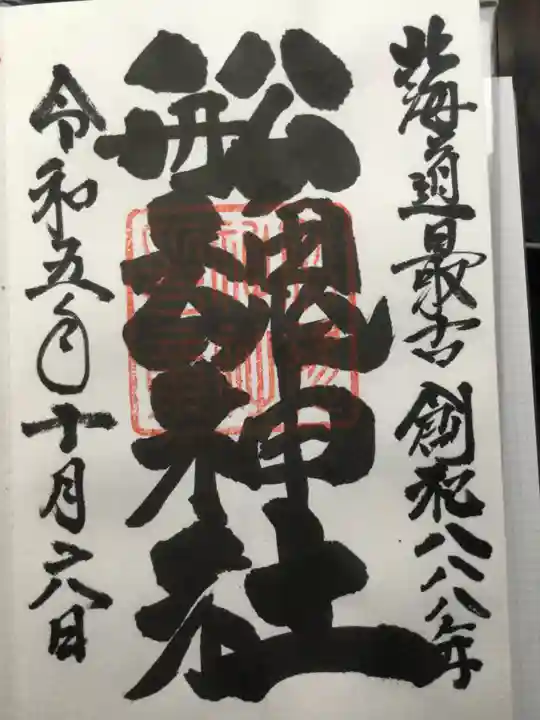 北海道最古 創祀八八八年
船魂神社
令和五年十月六日